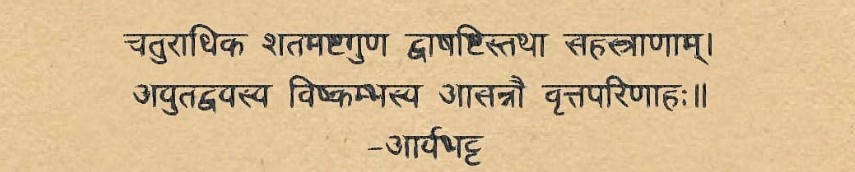 चतुराधिक शतमष्टगुण द्वाषष्टिस्तथा सहस्त्राणाम्।
अयुतद्वयस्य विष्कम्भस्य आसन्नौ वृत्तपरिणाहः॥
-आर्यभट्ट